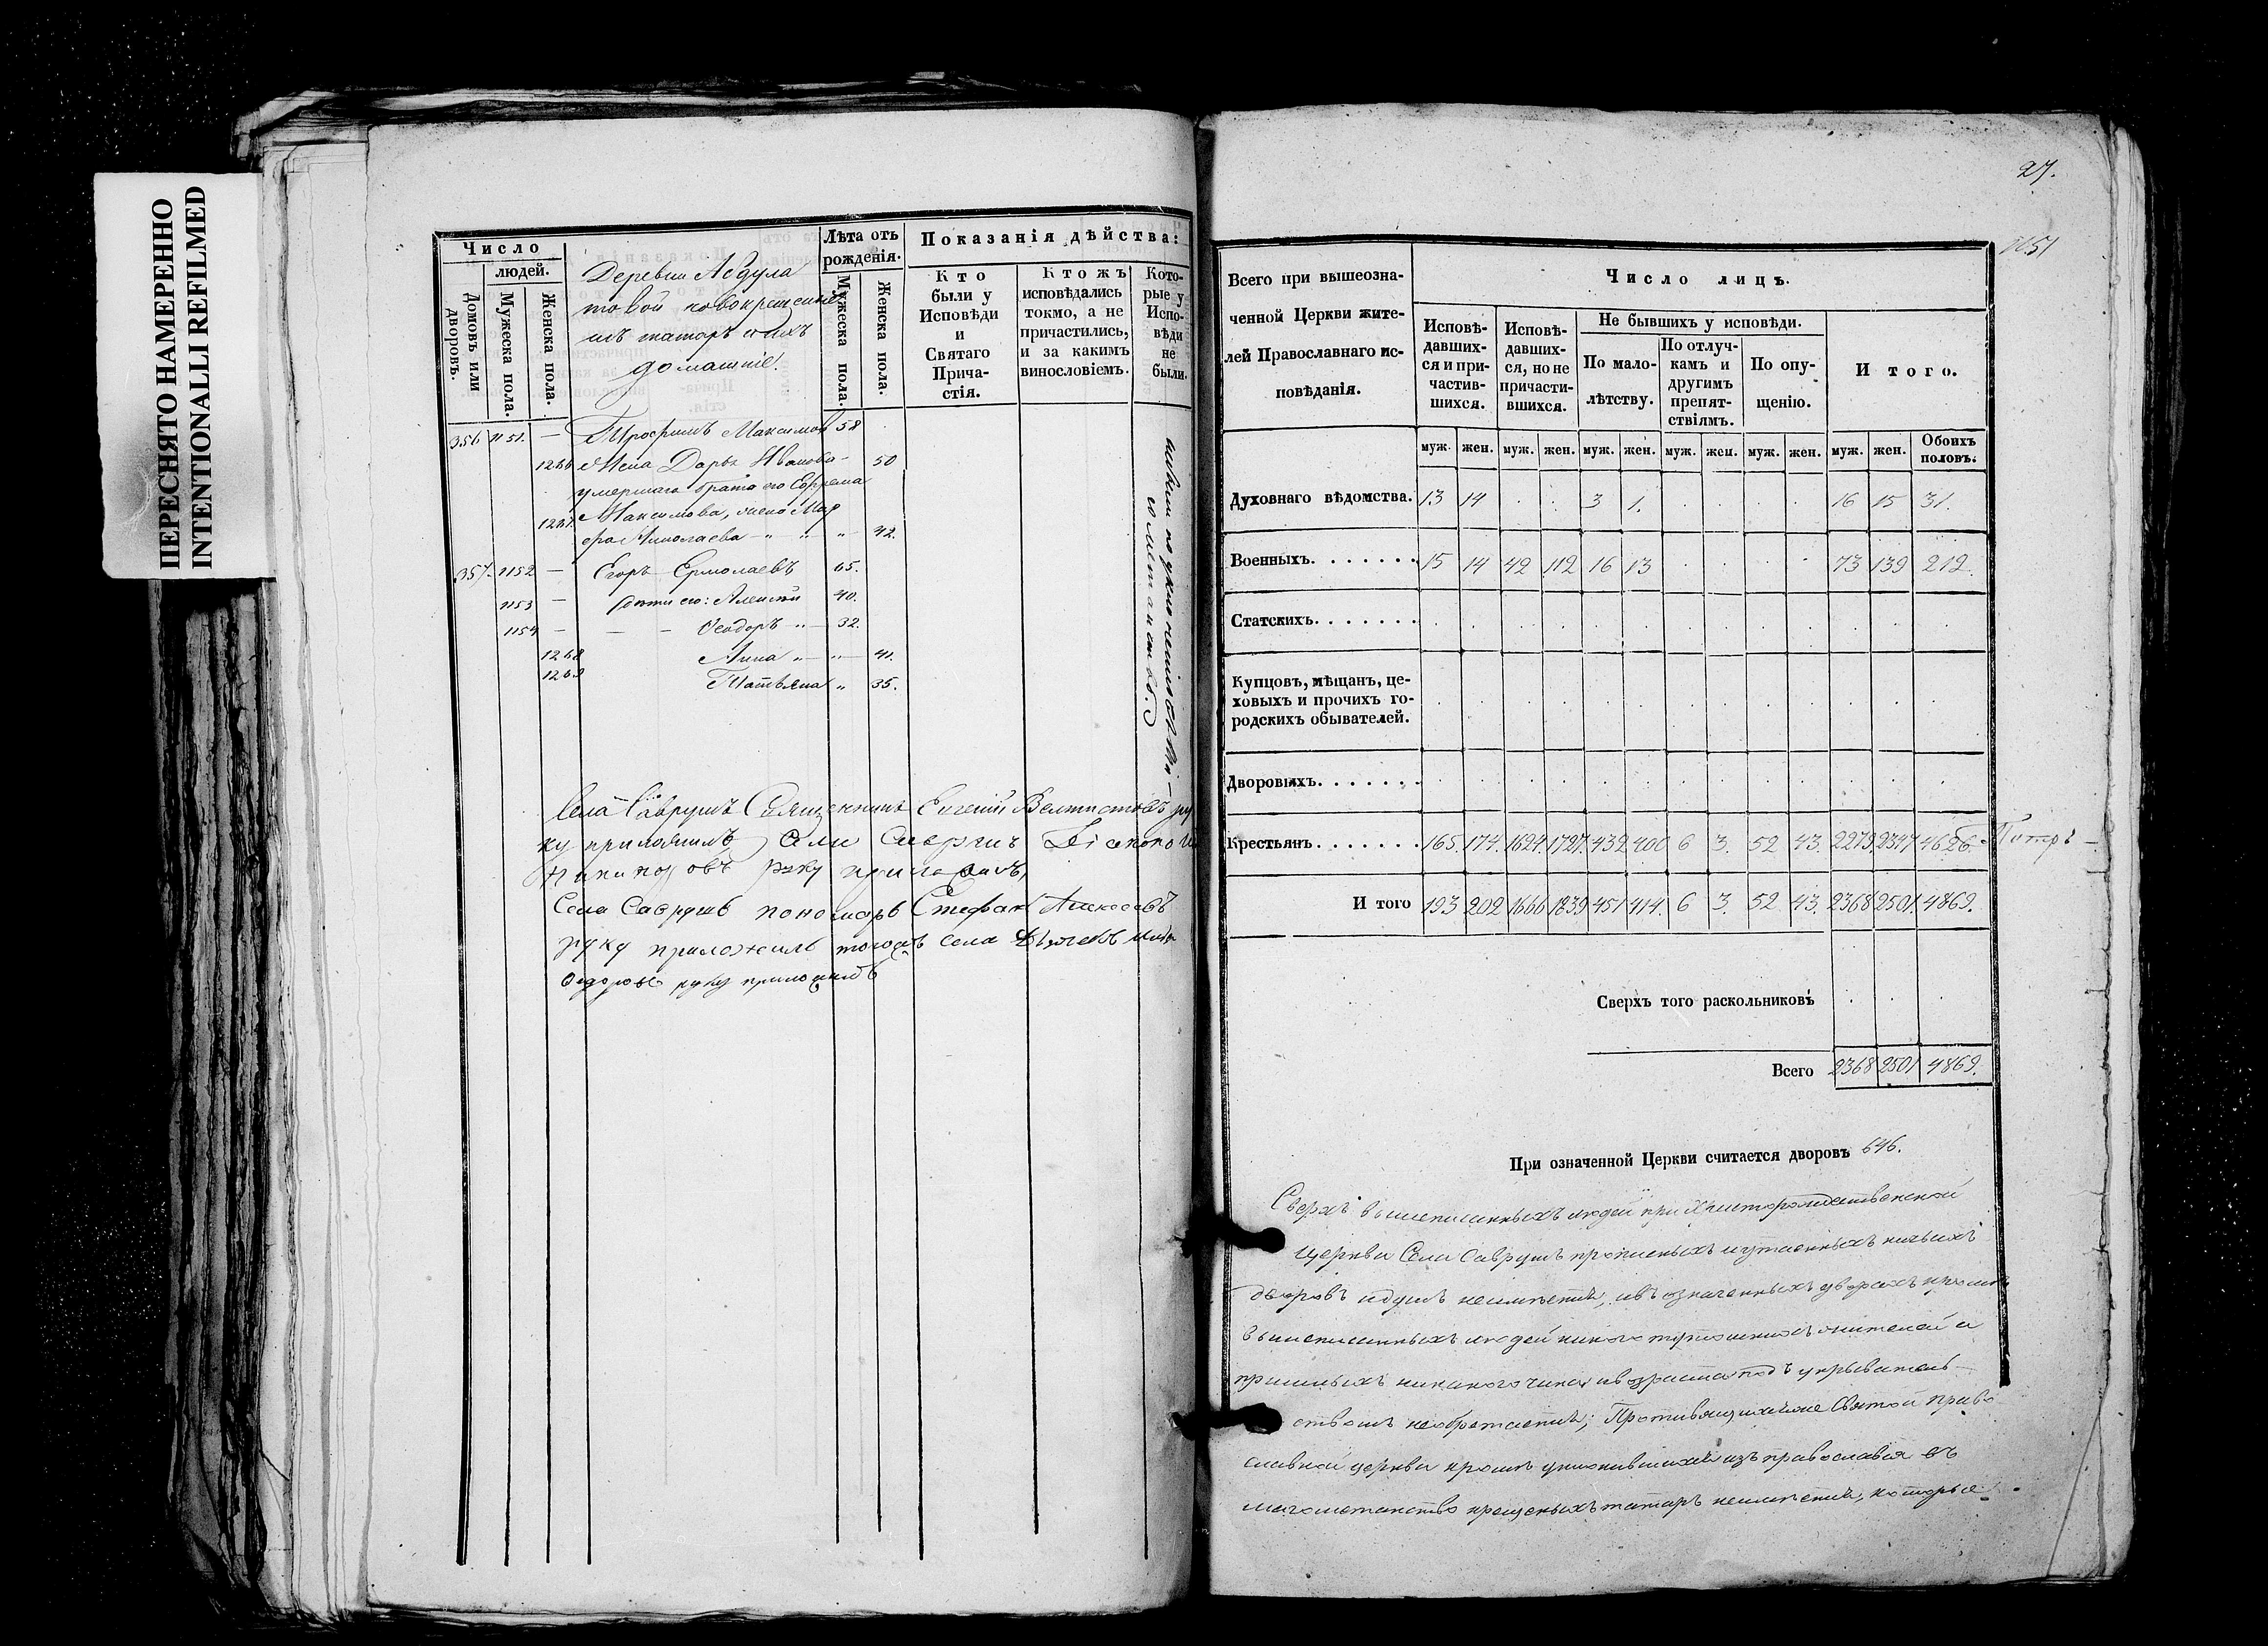 ПЕРЕСНЯТО НАМЕРЕННО
INTENTIONALLI REFILMED
Число
людей.
Домовъ или дворовъ.
Мужеска пола.
Женска пола.
Деревни Абдула
товой новокрещение
изъ татаръ и ихъ
домашніе.
Лѣта отъ рожденія.
Мужеска пола.
Женска пола.
Показанія дѣйства:
Кто были у Исповѣди и Святаго Причастія.
Ктожъ исповѣдались токмо, а не причастились, и за какимъ винословіемъ.
Которые у Исповѣди не были.
356 1151. — Трофимъ Максимов 58
1266 Жена Дарья Иванова — 50
умершаго брата его Ефрема
1267. Максимова, жена Мар
фа Николаева — " — " 42.
357. 1152 — Егоръ Ермолаевъ 65.
1153 — Дѣти его: Алексѣй 40.
1154 — — — Ѳеодоръ " — 32.
1268 Анна " — " — 41.
1269 Татьяна " 35.
по уклоненію
Села Савруши Священникъ Евгеній Велтистовъ ру
ку приложилъ Села Саврушъ Діаконъ
руку приложилъ,
Села Саврушъ пономарь Стефанъ Алексеевъ
руку приложилъ тогожъ села Дьячекъ
Ѳедоровъ руку приложилъ
27.
1051
Всего при вышеозначенной Церкви жителей Православнаго исповѣданія.
Число лицъ.
Исповѣдавшихся и причастившихся.
Исповѣдавшихся, но не причастившихся.
Не бывшихъ у исповѣди.
По малолѣтству.
По отлучкамъ и другимъ препятствіямъ.
По опущенію.
Итого.
муж. жен. муж. жен. муж. жен. муж. жен. муж. жен. муж. жен. Обоихъ половъ.
Духовнаго вѣдомства. 13 14 . . 3 1. . . . . 16 15 31.
Военныхъ. . . . . . . 15 14 42 112 16 13 . . . . 73 139 212.
Статскихъ. . . . . . .
Купцовъ, мѣщанъ, цеховыхъ и прочихъ городскихъ обывателей.
Дворовыхъ. . . . . . .
Крестьянъ. . . . . . . 165. 174. 1624. 1727. 432 400 6 3. 52 43. 2279. 2347 4626.
И того 193 202 1666 1839 451 414. 6 3. 52 43. 2368 2501. 4869.
Сверхъ того раскольниковъ
Всего 2368 2501 4869.
При означенной Церкви считается дворовъ 646.
Сверхъ вышеписанныхъ людей при Христорождественской
Церкви Села Саврушъ прописныхъ и утаенныхъ ничьихъ
дворовъ и душъ неимѣется, и въ означенныхъ дворахъ кромѣ
вышеписанныхъ людей никого тутошнихъ жителей и
пришлыхъ никакого чина и возраста подъ укрыватель
ствомъ необретается; Противящихся же Святой право
славной церкви кромѣ уклонившихся изъ православія въ
магометанство крещеныхъ татаръ неимѣется, которые